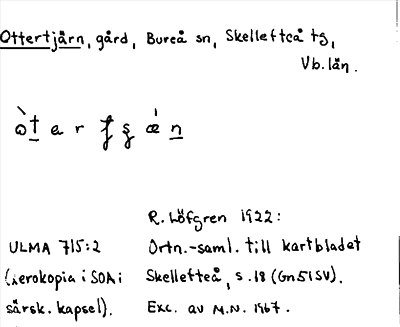 Ottertjårn, gård, Bureå sn, Skellefteå tg,
Vb. län.
R. Löfgren 1922:
ULMA 715:2 Ortn.-saml. till kartbladet
(xerokopia i SOA i Skellefteå, s. 18 (Gn51SV).
särsk. kapsel). Exc. av M.N. 1967.